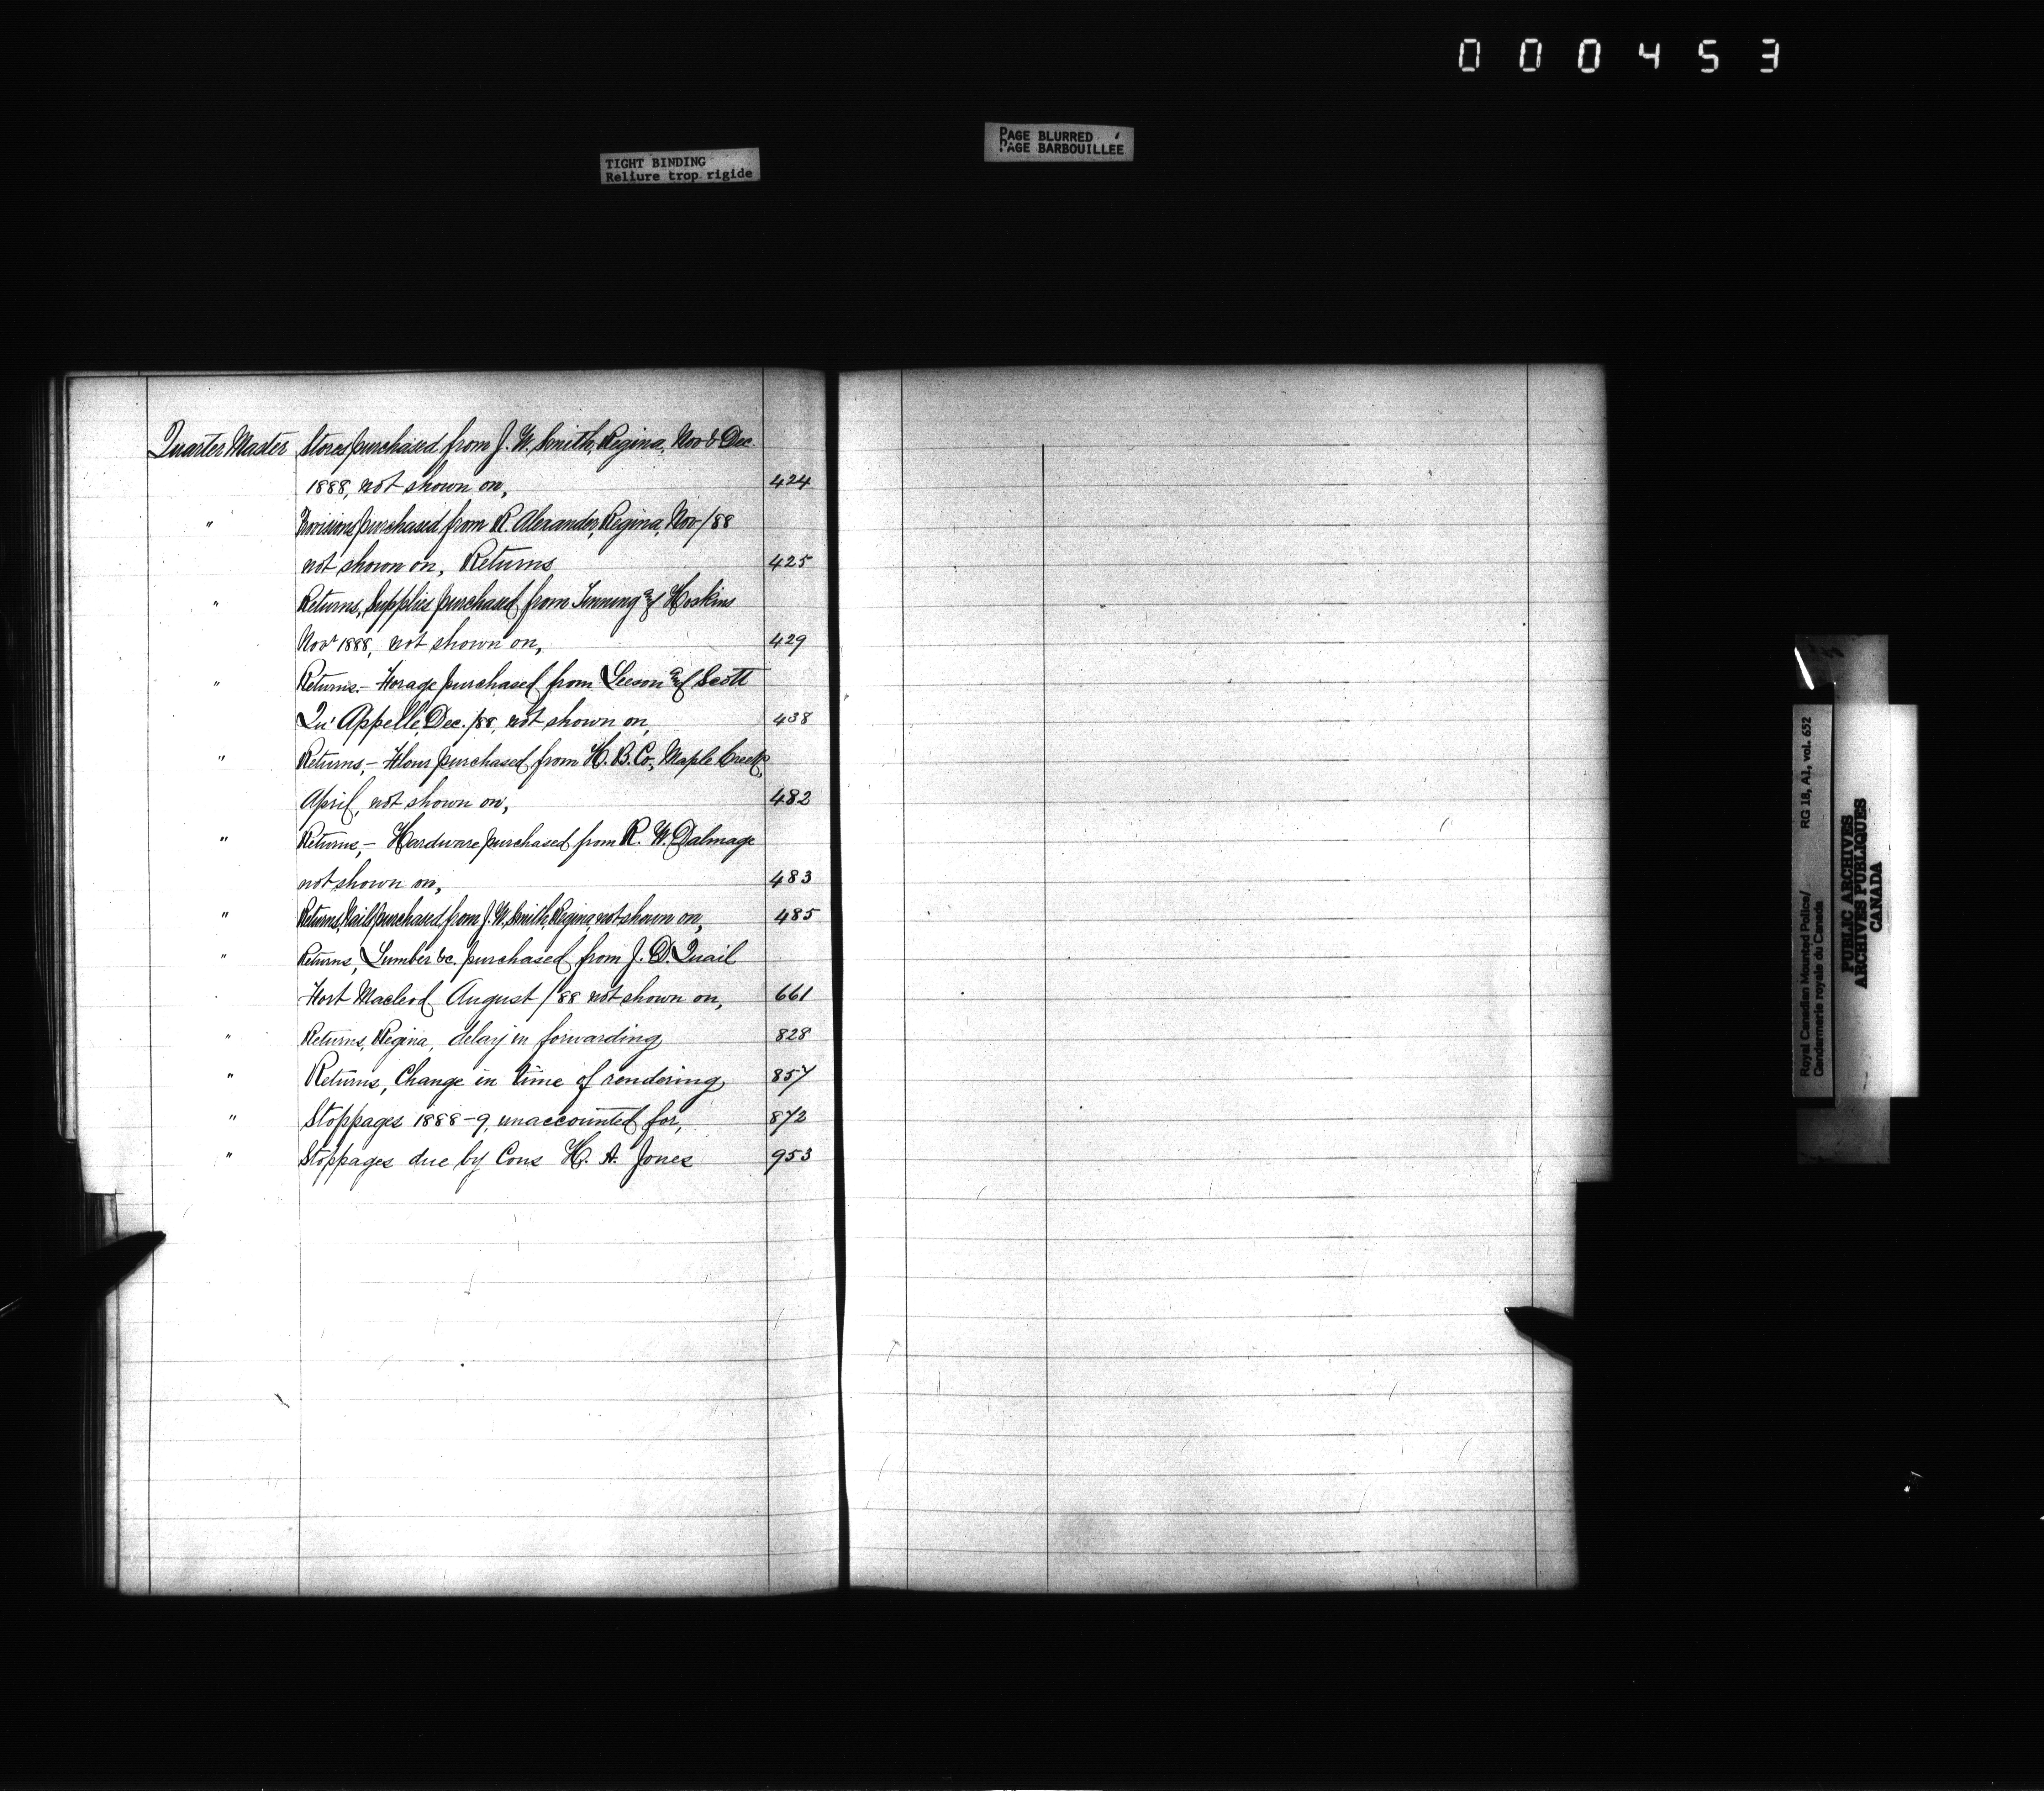 000453
TIGHT BINDING
Reliure trop rigide
PAGE BLURRED
PAGE BARBOUILLÉE
Quarter Master Stores purchased from J. W. Smith, Regina, Nov & Dec.
1888, not shown on, 424
" Provisions purchased from R. Alexander, Regina, Nov/88
not shown on, Returns 425
" Returns, Supplies purchased from Tinning and Hoskins
Novr 1888, not shown on, 429
" Returns.- Forage purchased from Leeson and Scott
Qu'Appelle, Dec./88, not shown on, 438
" Returns,- Flour purchased from H. B. Co., Maple Creek,
April, not shown on, 482
" Returns,- Hardware purchased from R. W. Dalmage
not shown on, 483
" Returns, Nails purchased from J. W. Smith, Regina, not shown on, 485
" Returns, Lumber &c. purchased from J. D. Quail
Fort Macleod August /88 not shown on, 661
" Returns, Regina, delay in forwarding 828
" Returns, Change in time of rendering 857
" Stoppages 1888-9, unaccounted for, 872
" Stoppages due by Cons H. A. Jones 953
Royal Canadian Mounted Police/ RG 18, A1, vol. 652
Gendarmerie royale du Canada
PUBLIC ARCHIVES
ARCHIVES PUBLIQUES
CANADA